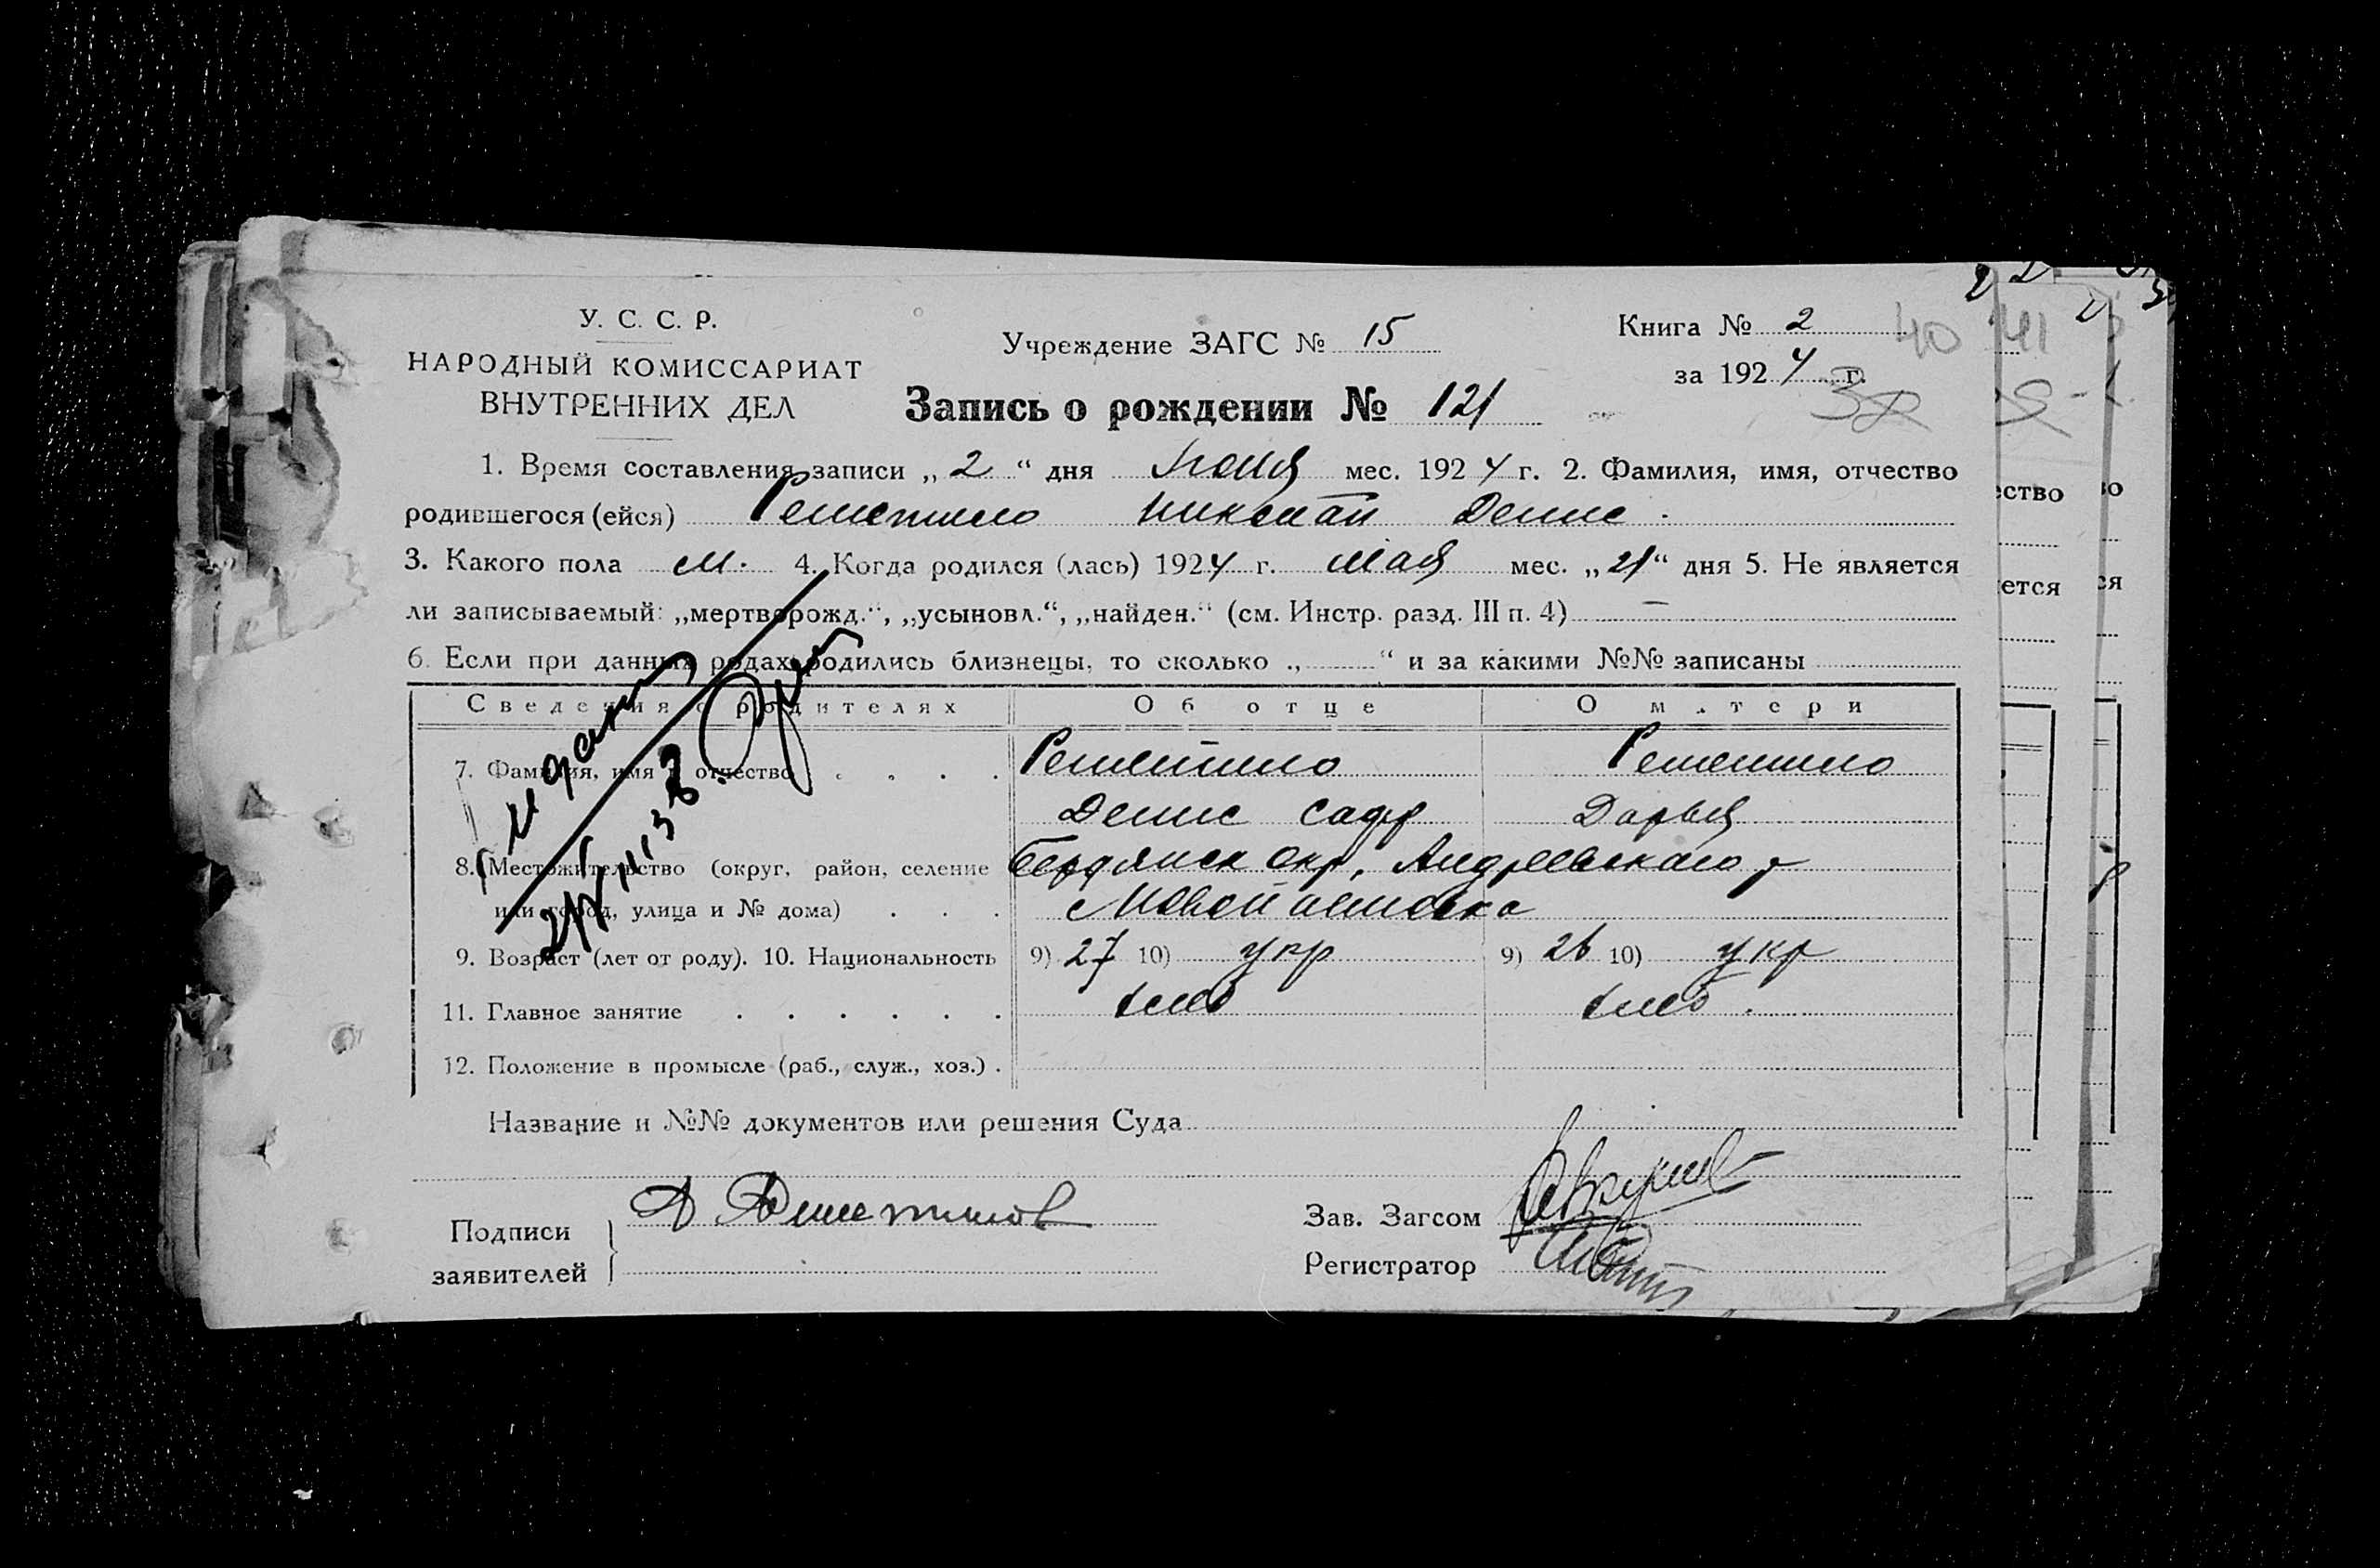 У. С. С. Р.
НАРОДНЫЙ КОМИССАРИАТ
ВНУТРЕННИХ ДЕЛ
Учреждение ЗАГС № 15
Книга № 2
за 1924 г.
40
41
Запись о рождении № 121
1. Время составления записи „2“ дня Июня мес. 1924 г. 2. Фамилия, имя, отчество
родившегося (ейся) Решетило Николай Денис.
3. Какого пола м. 4. Когда родился (лась) 1924 г. мая мес. „21“ дня 5. Не является
ли записываемый: „мертворожд.“, „усыновл.“, „найден.“ (см. Инстр. разд. III п. 4) —
6. Если при данных родах родились близнецы, то сколько „ “ и за какими №№ записаны
Сведения о родителях Об отце О матери
7. Фамилия, имя и отчество . . . . Решетило Решетило
Денис Дарья
8. Местожительство (округ, район, селение Бердянск окр, Андреевского р
или город, улица и № дома) . . .
9. Возраст (лет от роду). 10. Национальность 9) 27 10) укр 9) 26 10) укр
11. Главное занятие . . . . . . хлеб хлеб.
12. Положение в промысле (раб., служ., хоз.) .
Название и №№ документов или решения Суда
Подписи
заявителей
Зав. Загсом
Регистратор
ство
ется